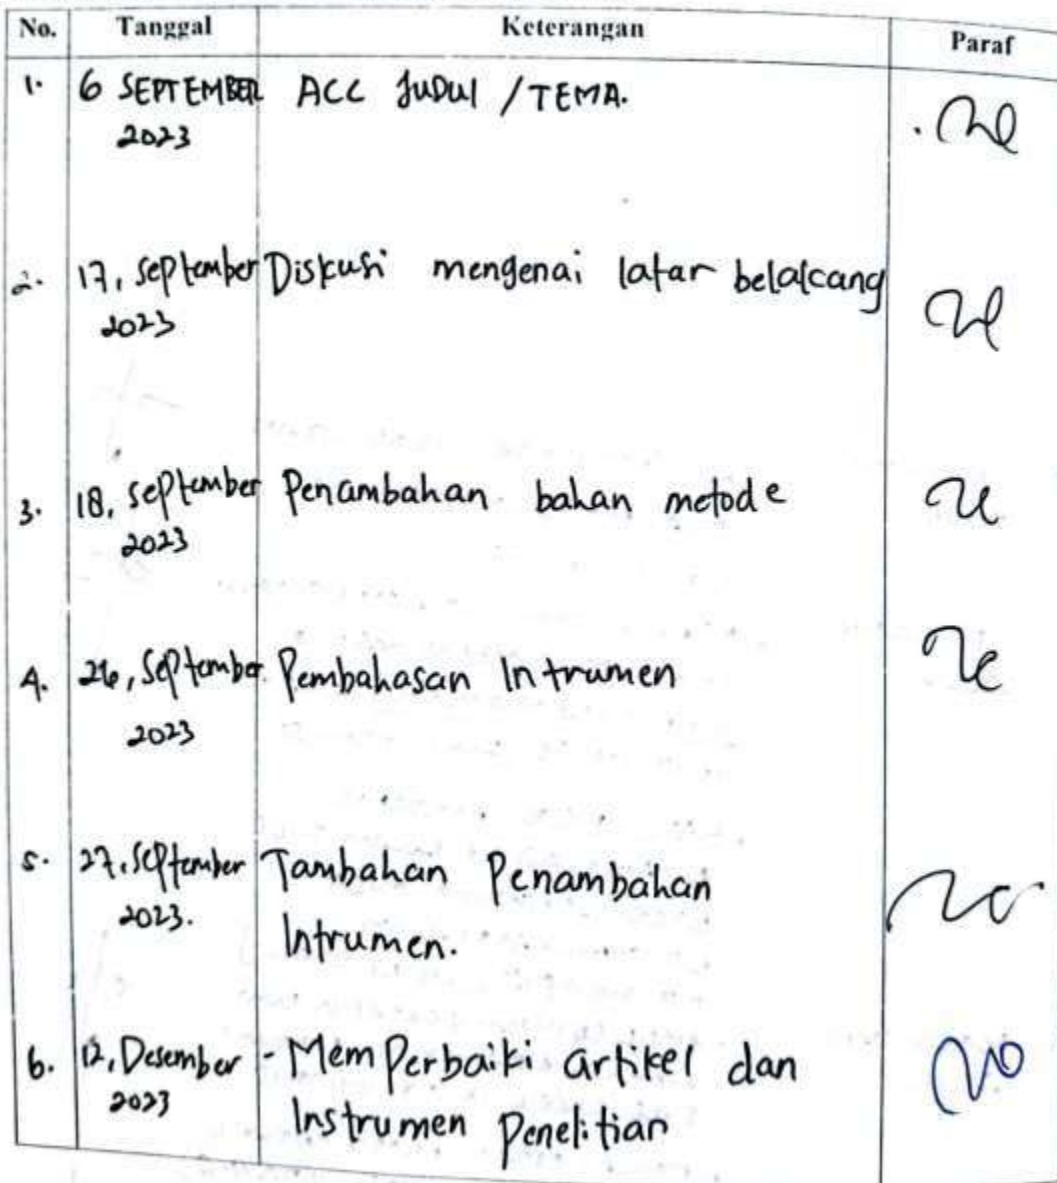 No. Tanggal Keterangan Paraf
1. 6 SEPTEMBER ACC JUDUl / TEMA.
2023
2. 17, september Diskusi mengenai latar belakang
2023
3. 18, september Penambahan bahan metode
2023
4. 26, September Pembahasan Intrumen
2023
5. 27, September Tambahan Penambahan
2023. Intrumen.
6. 12, Desember - MemPerbaiki artikel dan
2023 Instrumen Penelitian